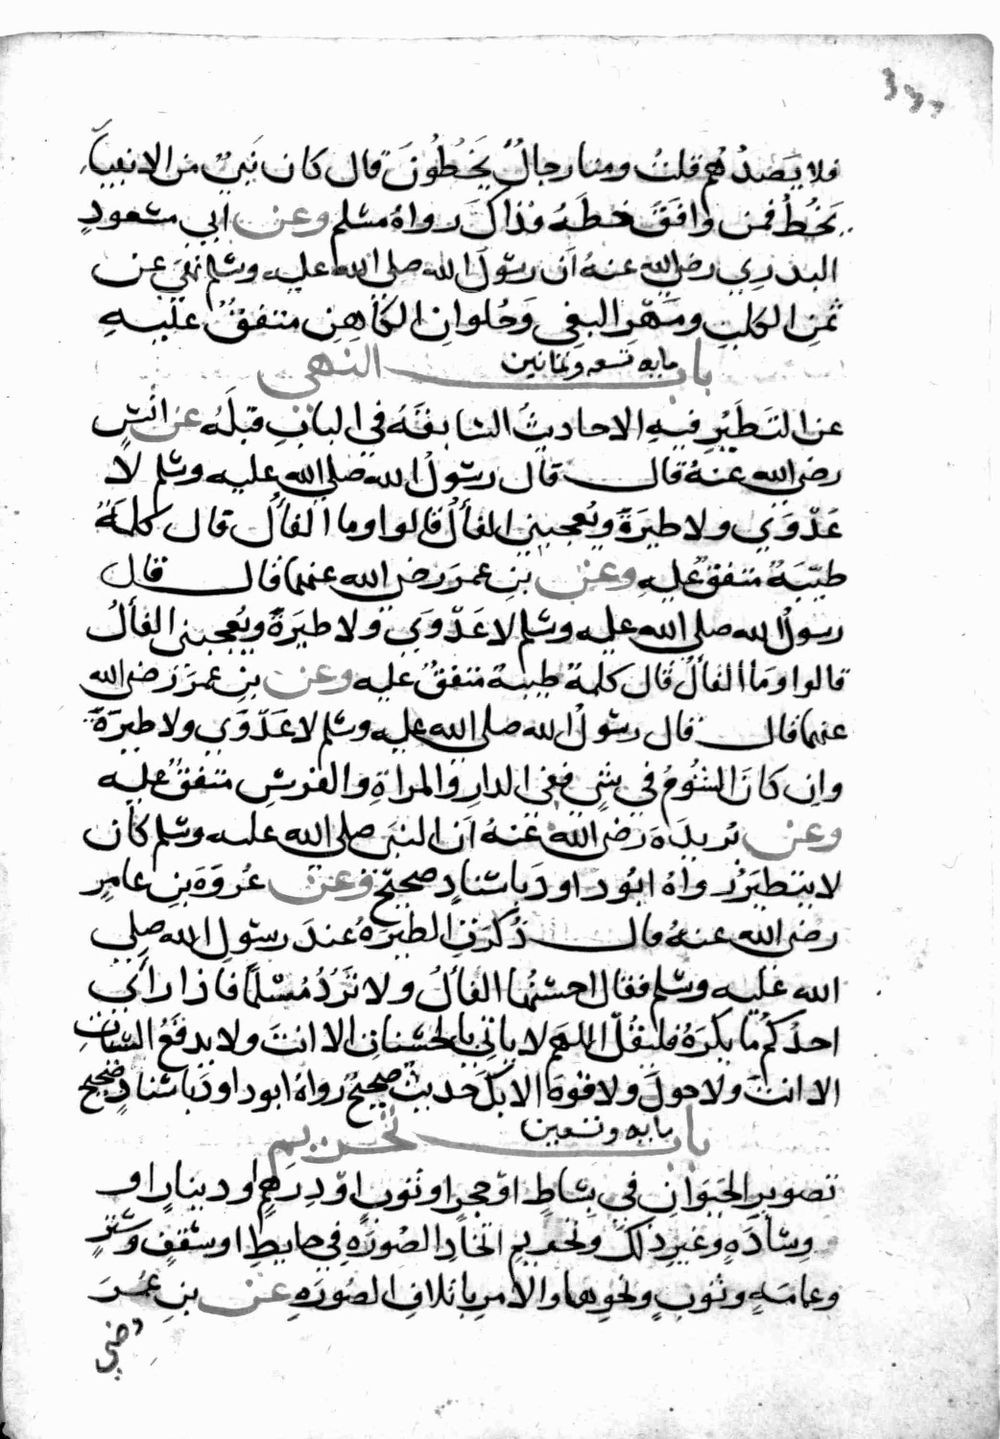 فلا يَصُدُهُم قلتُ ومنا رجالٌ يَخُطُّونَ قال كان نَبيٌ من الانبياءِ
يَخُطُّ فمن وافَقَ خطَهُ فذاكَ رواهُ مسلم وعن ابي مسعودٍ
البدرِي رضي الله عنهُ اَن رسُولَ الله صلى الله عليه وسلم نَهَى عن
ثمنِ الكلبِ ومَهْرِ البغِي وَحُلوانِ الكَاهِنِ متفقٌ عليهِ
باب مايه تسعه وثمانين النهي
عن التَطيُرِ فيهِ الاحاديثُ السَابقَةُ في البابِ قبلَهُ عن انسٍ
رضى الله عنهُ قال قال رسُولُ الله صلى الله عليه وسلم لا
عَدْوَي ولا طيرَةَ ويُعجبني الفألُ قالوا وما الفألُ قال كلمَةٌ
طيّبَةٌ متفقٌ عليهِ وعن بنِ عمرَ رضي الله عنهما قال قال
رسولُ الله صلى الله عليه وسلم لا عَدْوَي ولا طيَرَةَ ويُعجبنى الفألُ
قالوا وَما الفالُ قال كلمةٌ طيبةٌ متفقٌ عليه وعن بنِ عمَرَ رَضى الله
عنهما قال قال رسُولُ الله صلى الله عليه وسلم لا عَدْوَي ولا طيرَةَ
وان كانَ الشُومُ في شيٍ ففِى الدارِ والمراةِ والفرسِ متفقٌ عليه
وعن بُريدَةَ رضى الله عَنهُ اَن النبيَ صلى الله عليه وسلم كان
لا يتطيَرُ رواهُ ابُو داودَ باسنادٍ صحيحٍ وعن عُروَةَ بنِ عامرٍ
رضى الله عنهُ قال ذُكرَتِ الطيرَةُ عندَ رسوْلِ الله صلى
الله عليه وسلم فقال احسَنُها الفألُ ولا تَرُدُ مُسْلمًا فاذا رأي
احدُكُم ما يَكرَهُ فليقُلْ اللهم لا ياتي بالحسَناتِ الا انتَ ولا يدفَعُ السَياتِ
الا انتَ ولا حولَ ولا قوةَ الا بكَ حديث صحيحٌ رواهُ ابو داودَ باسنادٍ صحيح
باب مايه وتسعين تحريم
تصويرِ الحيَوانِ في بسَاطٍ اوْ حجرٍ او ثوبٍ اوْ دِرهَمٍ او دينارٍ او
وِسَادَهٍ وغيرِ ذلكَ وتحريمِ اتخاذِ الصُورَهِ في حايطٍ او سَقفٍ وسَترٍ
وعمامَهٍ وثوبٍ ونحوِهما والامرِ باتلافِ الصُورَهِ عن بنِ عُمَرَ
رضي